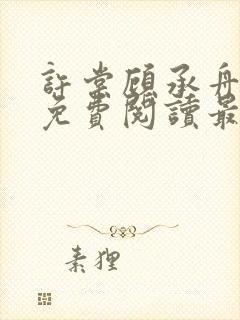 許棠顧承舟
免費閱讀最
素狸